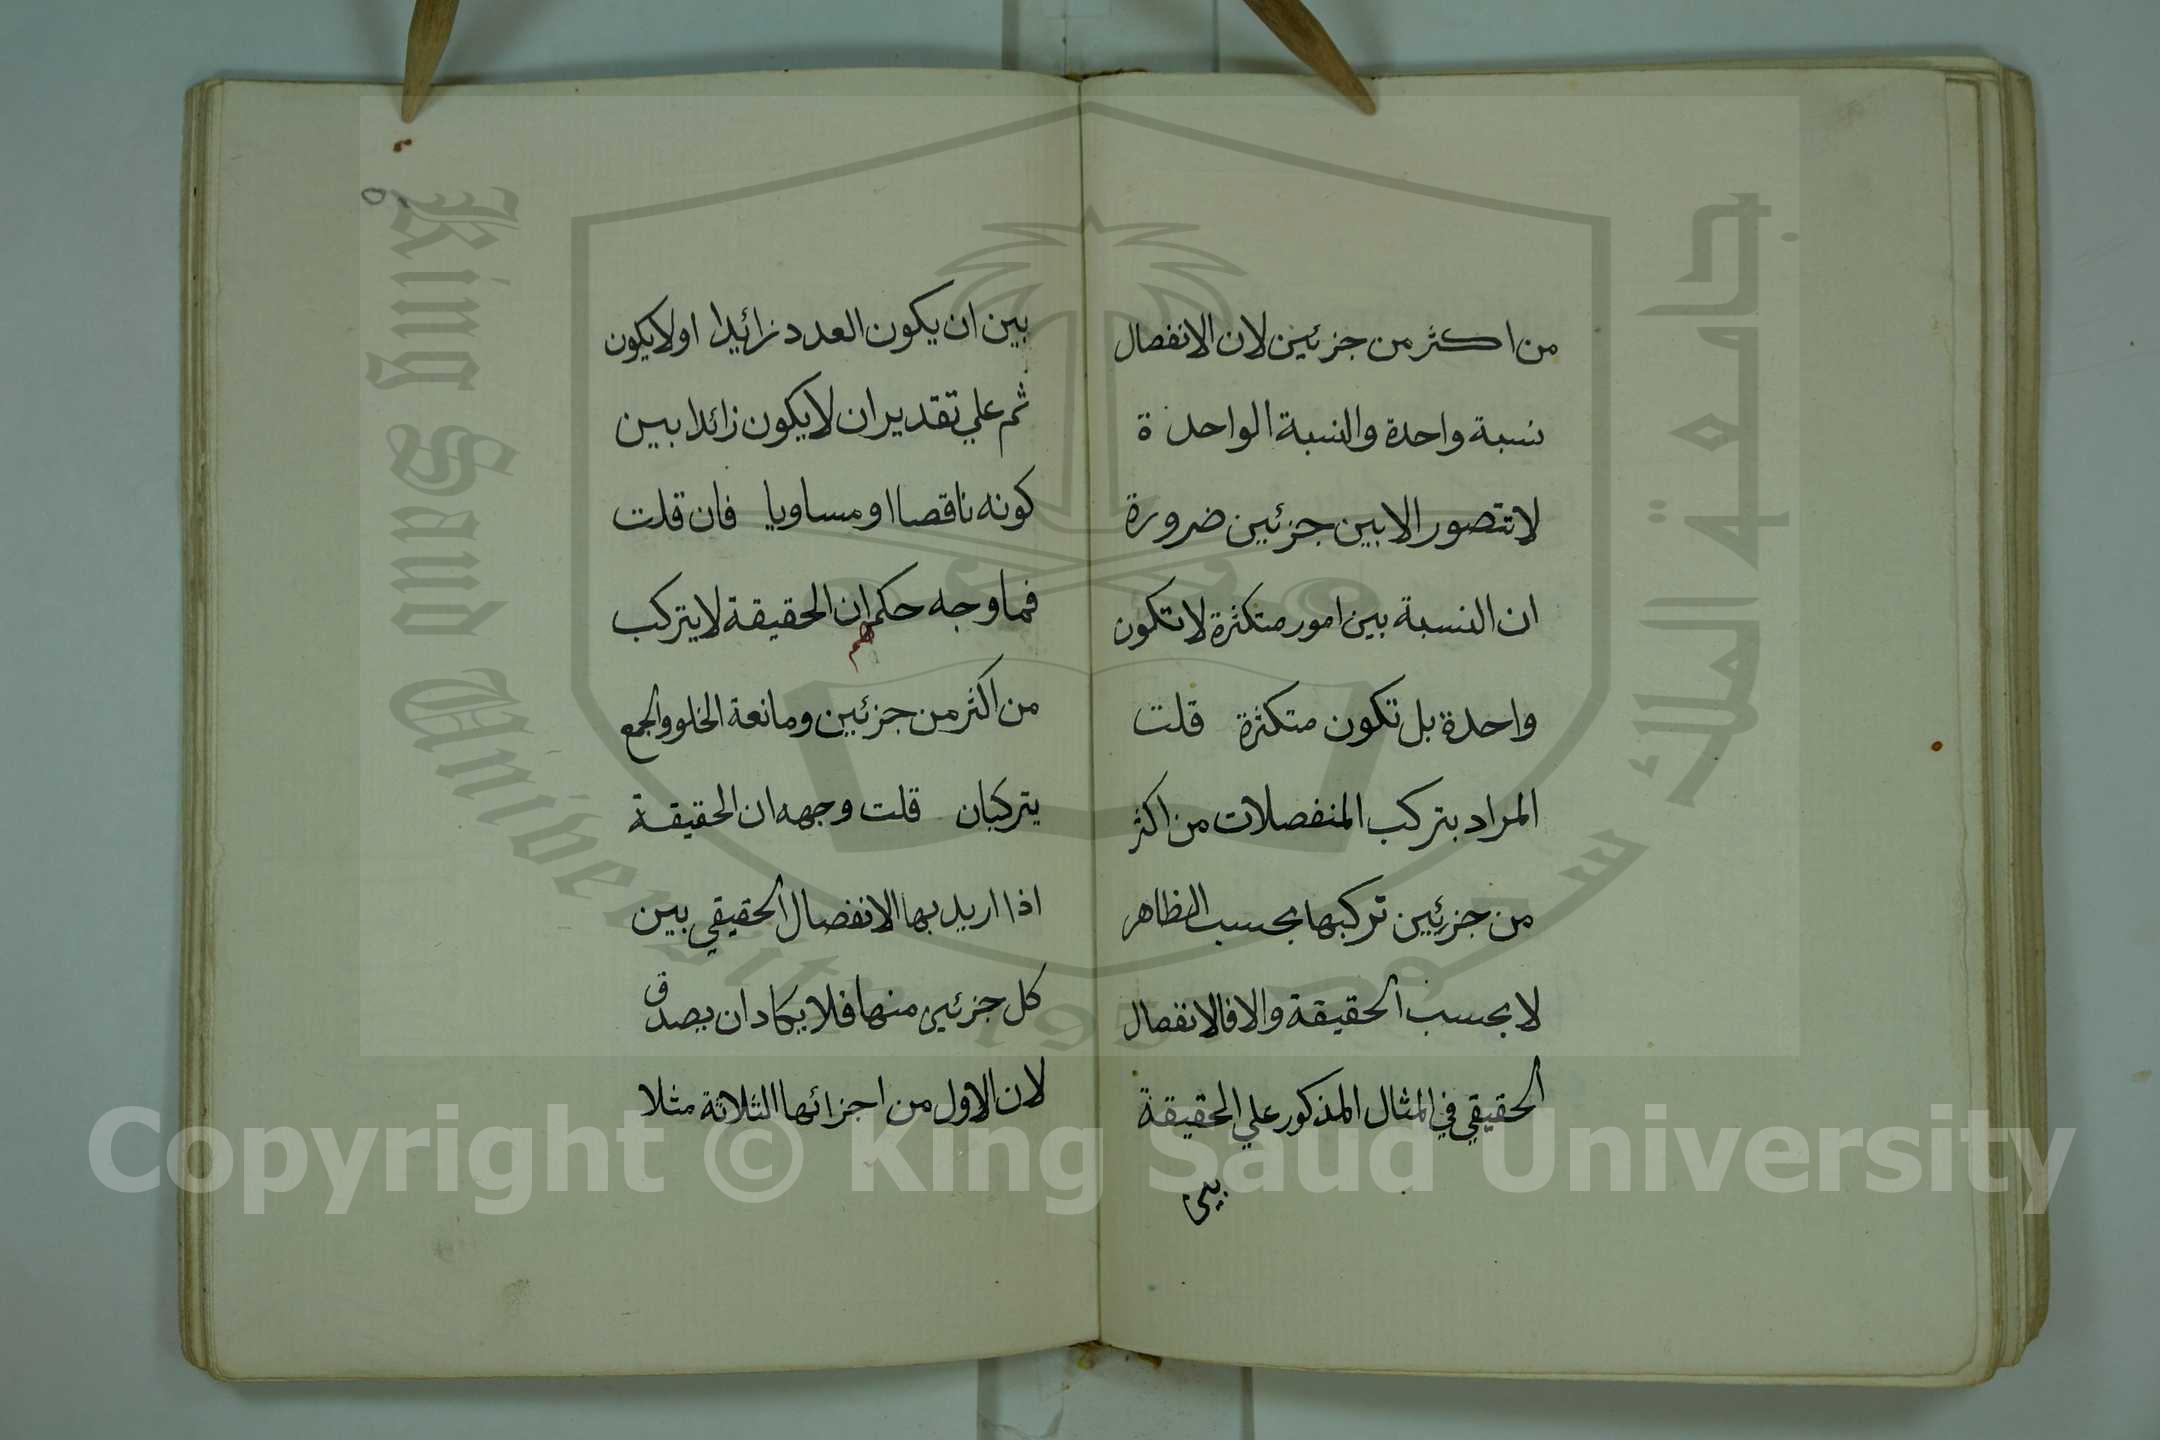 من اكثر من جزئين لان الانفصال
نسبة واحدة والنسبة الواحدة
لا تتصور الا بين جزئين ضرورة
ان النسبة بين امور متكثرة لا تكون
واحدة بل تكون متكثرة قلت
المراد بتركب المنفصلات من اكثر
من جزئين تركبها بحسب الظاهر
لا بحسب الحقيقة والا فالانفصال
الحقيقي في المثال المذكور علي الحقيقة
بين
بين ان يكون العدد زائدا او لا يكون
ثم علي تقدير ان لا يكون زائدا بين
كونه ناقصا او مساويا فان قلت
فما وجه حكمهم ان الحقيقة لا يتركب
من اكثر من جزئين ومانعة الخلو والجمع
يتركبان قلت وجهه ان الحقيقة
اذا اريد بها الانفصال الحقيقي بين
كل جزئين منها فلا يكاد ان يصدق
لان الاول من اجزائها الثلاثة مثلا
King Saud University
جامعة الملك سعود
1957
Copyright © King Saud University